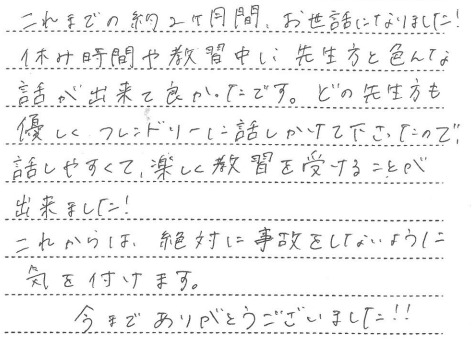 これまでの約2ケ月間、お世話になりました!
休み時間や教習中に先生方と色んな
話が出来て良かったです。どの先生方も
優しくフレンドリーに話しかけて下さったので、
話しやすくて、楽しく教習を受けることが
出来ました!
これからは、絶対に事故をしないように
気を付けます。
今までありがとうございました!!